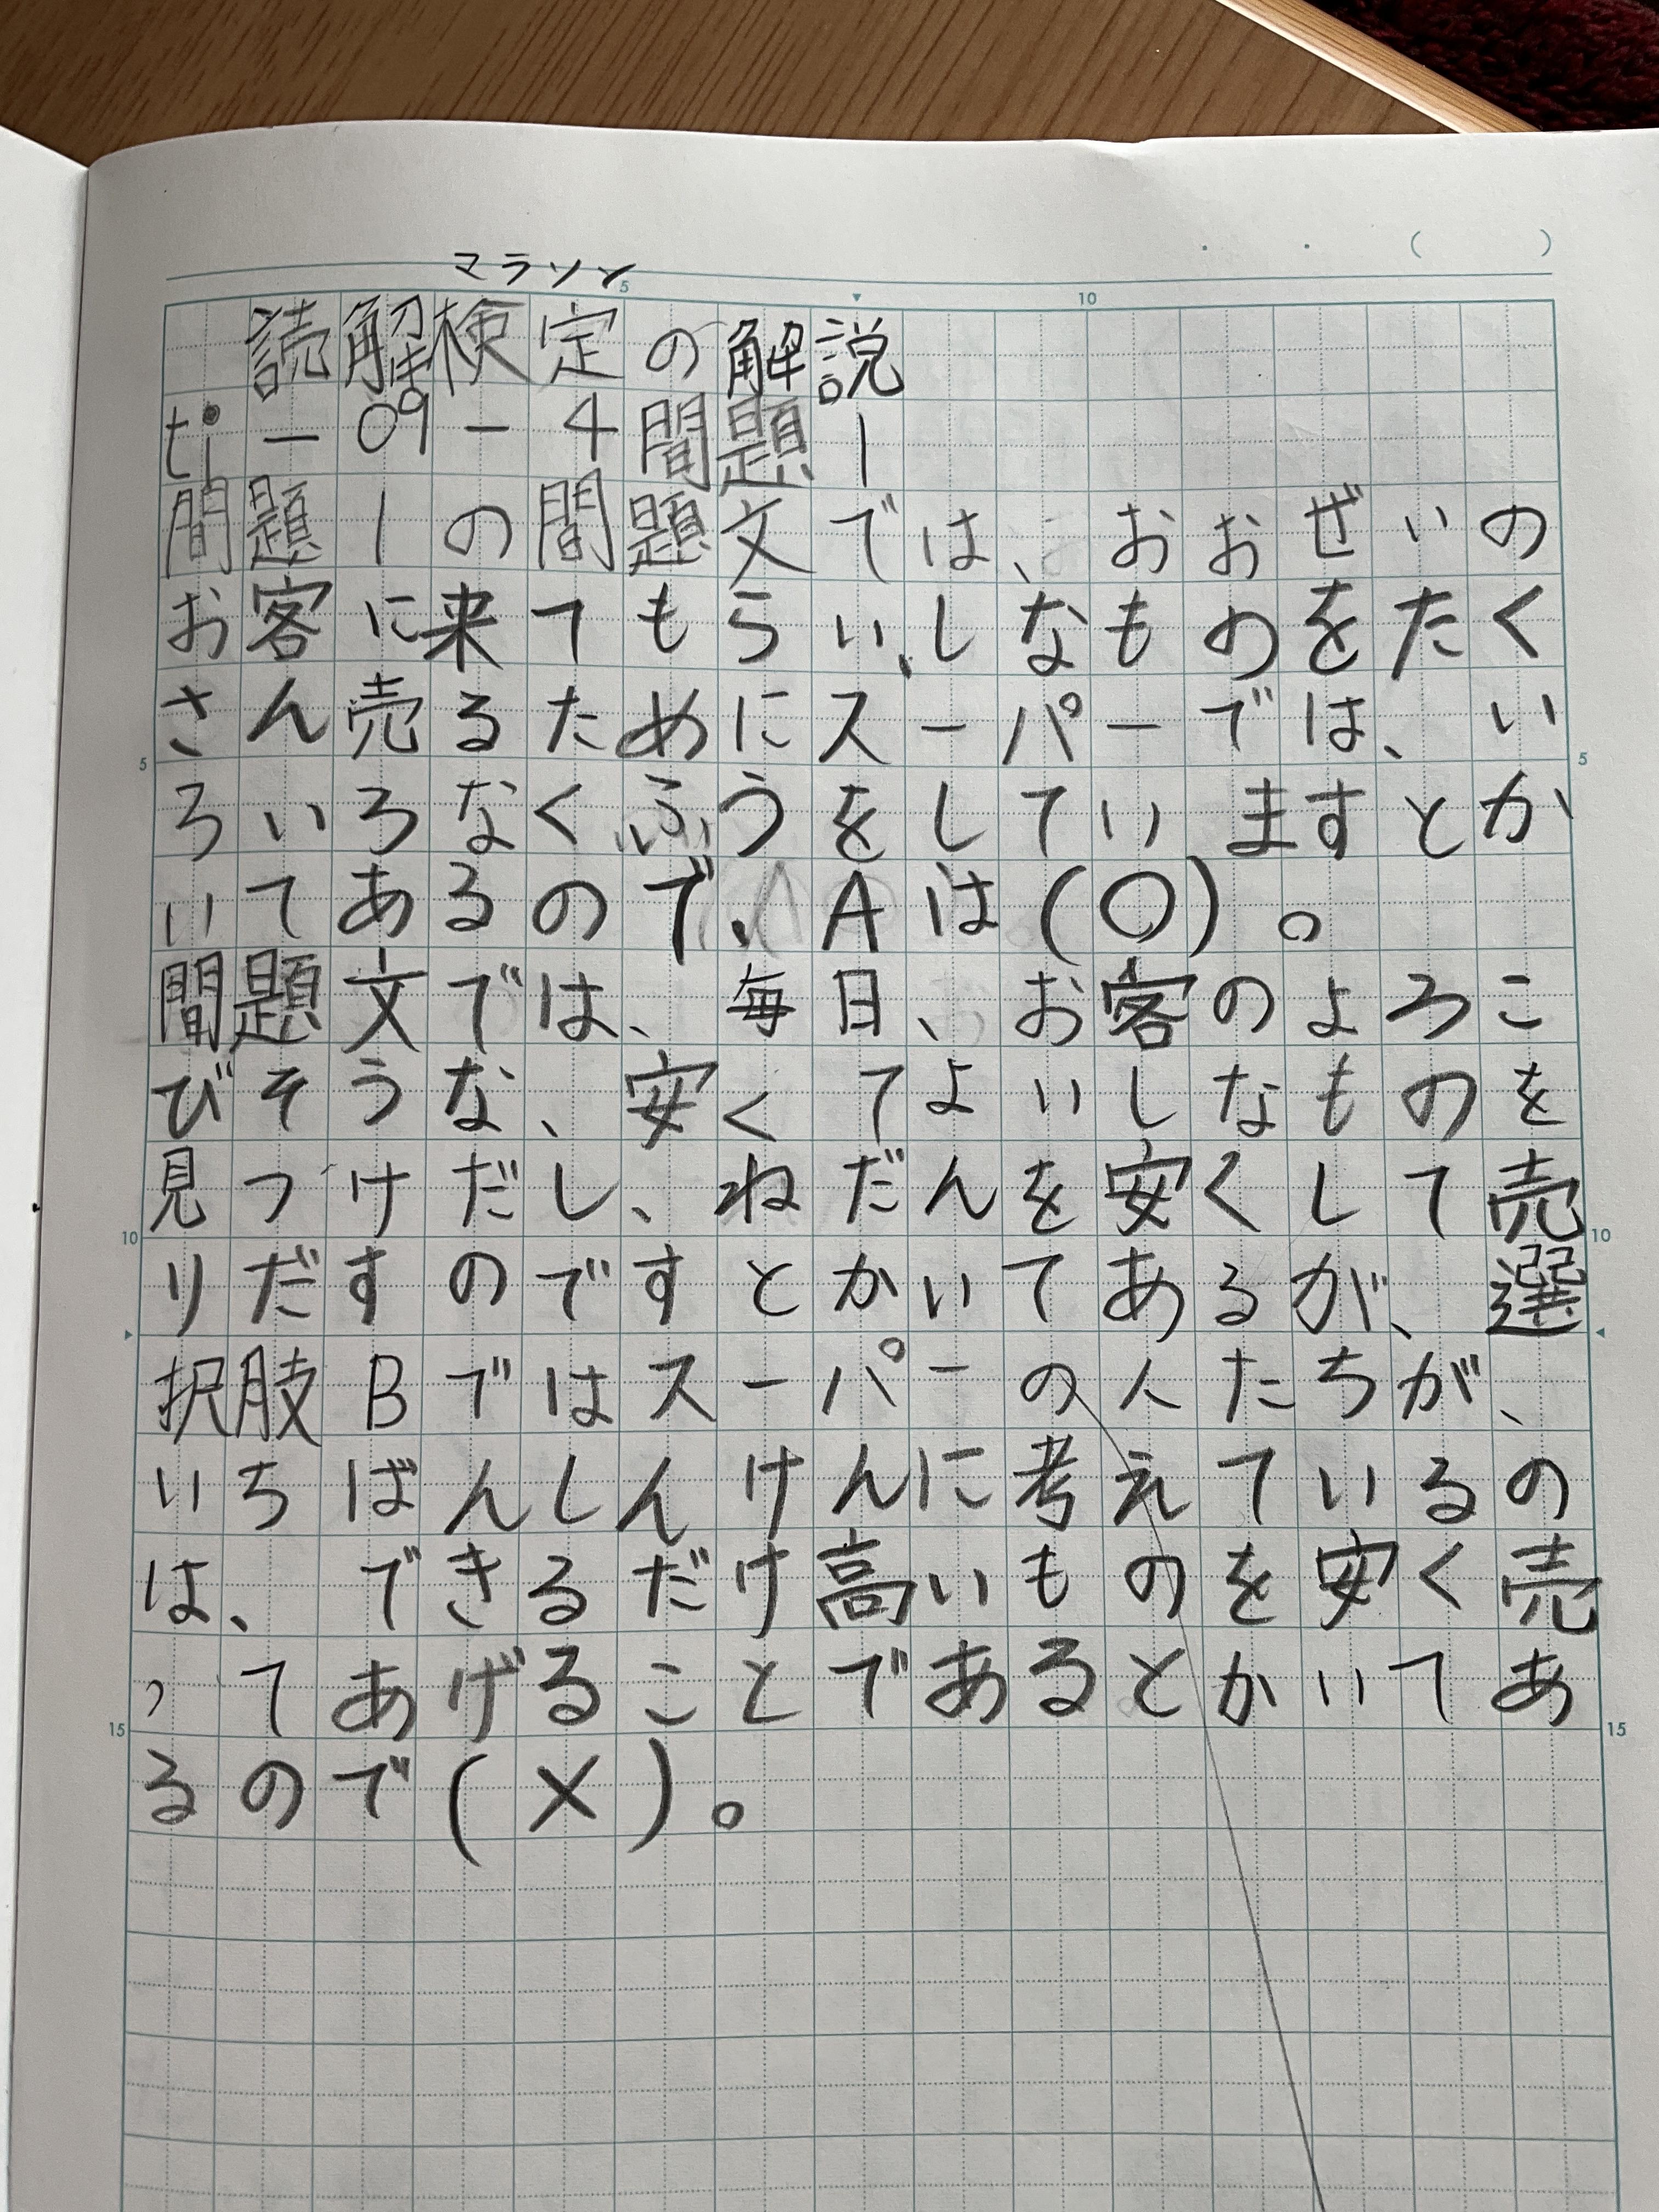 マラソン
5 10
読解検定の解説
ti-09-4問題1
問題1の問題文では、おおぜいの
お客に来てもらい、しなものをたく
さん売るためにスーパーでは、い
5 5
ろいろなくふうをしていますとか
いてあるので、Aは(〇)。
問題文では、毎日、お客のよろこ
びそうな、安くてよいしなものを
見つけだし、ねだんを安くして売
10 10
りだすのですとかいてあるが、選
択肢Bではスーパーの人たちが、
いちばんしんけんに考えているの
は、できるだけ高いものを安く売
ってあげることであるとかいてあ
15 15
るので(×)。